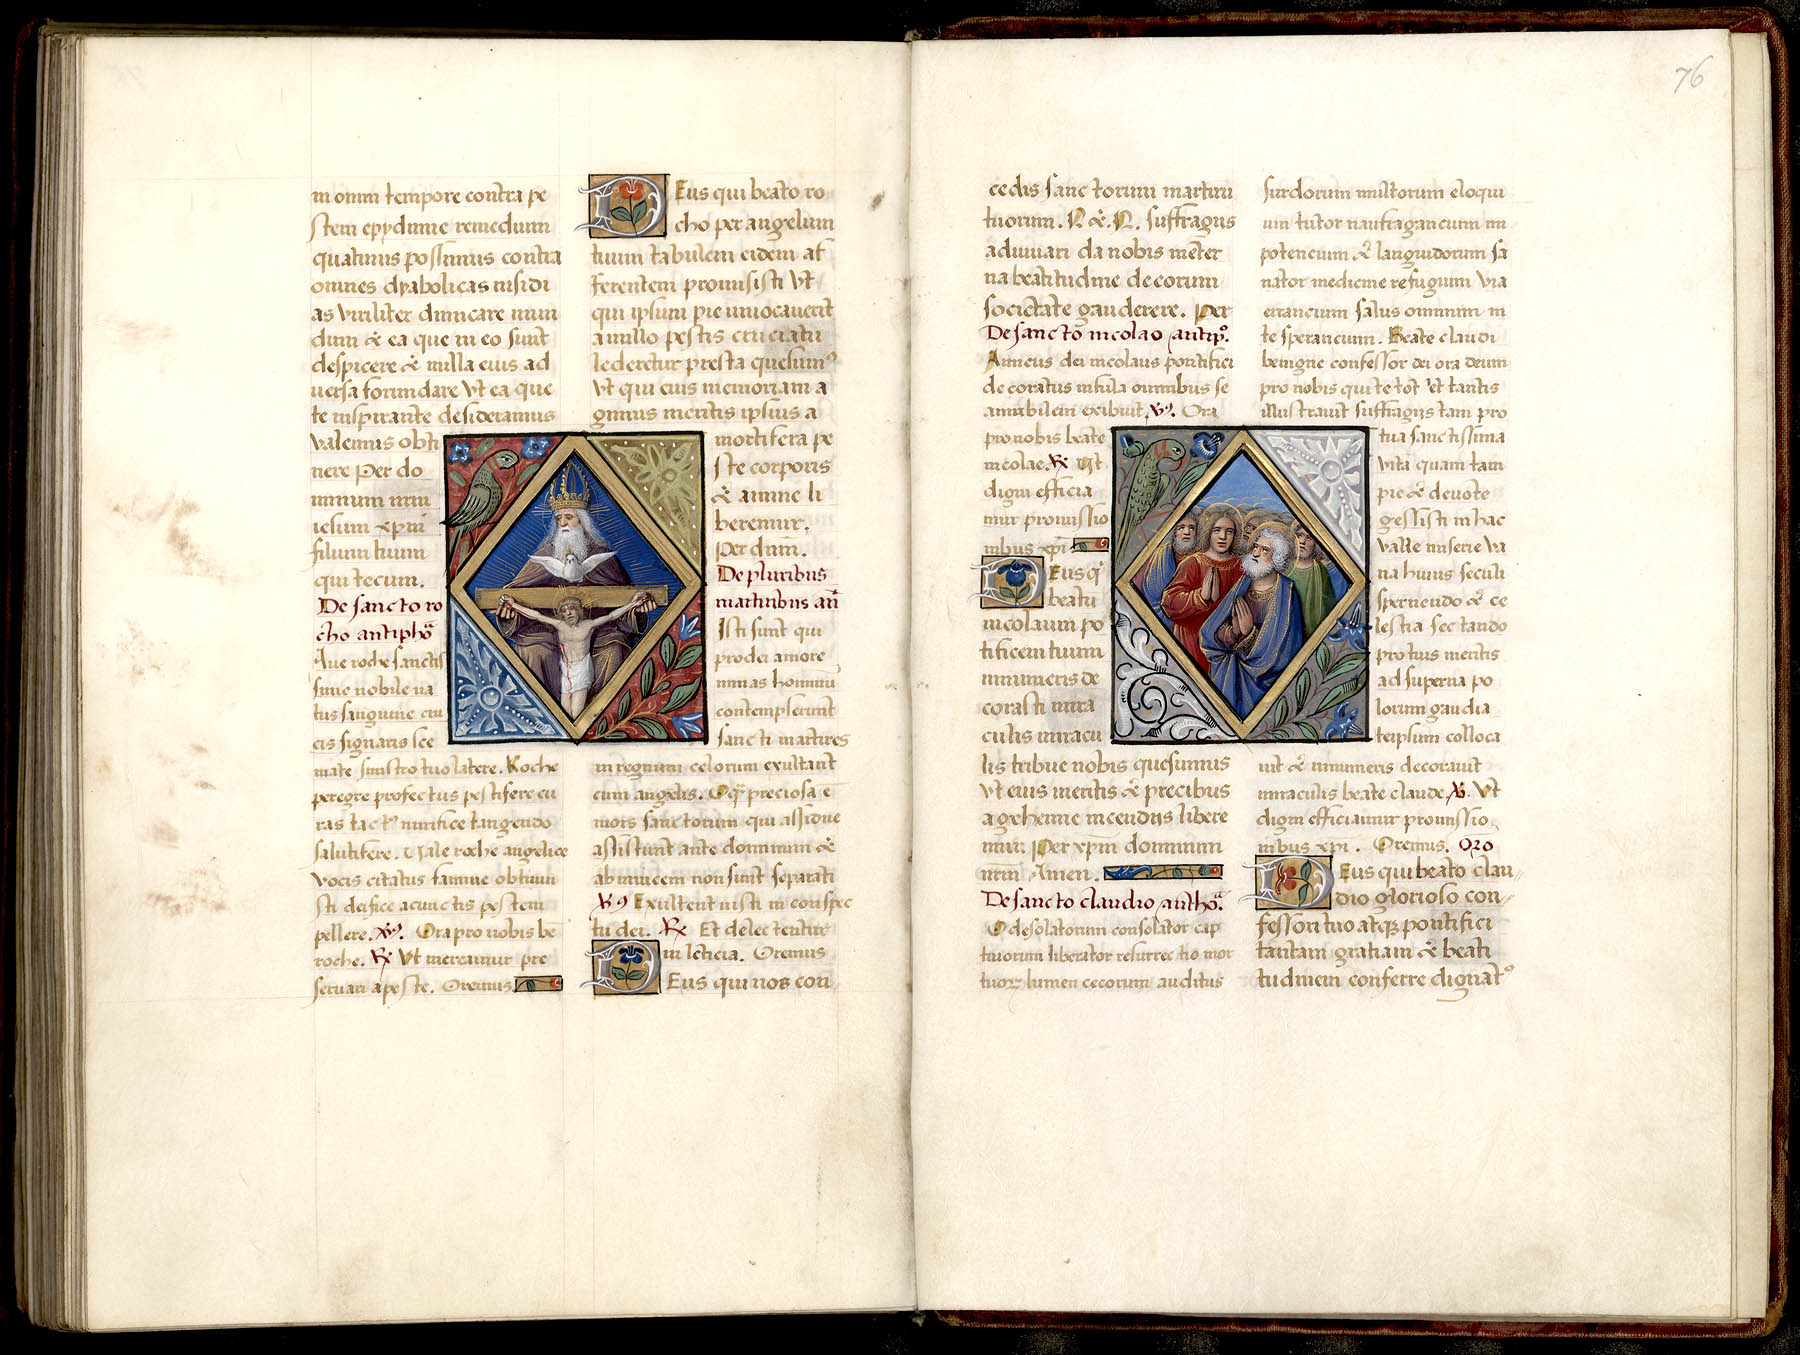 m omni tempore contra pe
stem epydimie remedium
quatinus possimus contra
omnes dyabolicas insidi
as viriliter dimicare mun
dum & ea que in eo sunt
despicere & nulla eius ad
versa formidare vt ea que
te inspirante desideramus
valemus obti
nere Per do
minum nrm
iesum xpm
filium tuum
qui tecum.
De sancto ro
cho antipho
Aue roche sanctis
sime nobile na
tus sanguine cru
cis signaris sce
mate sinistro tuo latere. Roche
peregre profectus pestifere cu
ras tactus mirifice tangendo
salutifere. Vale roche angelice
vocis citatus famine obtinui
sti deifice a cunctis pestem
pellere. V. Ora pro nobis be
roche. R Vt mereamur pre
seruari a peste. Oremus
Deus qui beato ro
cho per angelum
tuum tabulem eidem af
ferentem promisisti vt
qui ipsum pie inuocauerit
a nullo pestis cruciatu
lederetur presta quesum9
vt qui eius memoriam a
gimus meritis ipsius a
mortifera pe
ste corporis
& anime li
beremur.
Per dum.
De pluribus
martiribus an
Isti sunt qui
pro dei amore
minas hominu
contempserunt
sancti martires
in regnum celorum exultant
cum angelis. O q preciosa e
mors sanctorum qui assidue
assistunt ante dominum &
ab inuicem non sunt separati
V Exultent iusti in conspec
tu dei. R Et delectentur
in leticia. Oremus
Deus qui nos con
76
cedis sanctorum martiru
tuorum. N & N. suffragiis
adiuuari da nobis in eter
na beatitudine de eorum
societate gauderere. Per
De sancto nicolao antip.
Amicus dei nicolaus pontifici
decoratus infula omnibus se
amabilem exibuit V. Ora
pro nobis beate
nicolae. R Vt
digni efficia
mur promissio
nibus xpi
Deus q
beatu
nicolaum po
tificem tuum
innumeris de
corasti mira
culis miracu
lis tribue nobis quesumus
vt eius meritis & precibus
a gehenne incendiis libere
mur. Per xpm dominum
nrm Amen.
De sancto claudio antho.
O desolatorum consolator cap
tiuorum liberator resurrectio mor
tuor lumen cecorum auditus
surdorum multorum eloqui
um tutor naufragancium in
potencium & languidorum sa
nator medicine refugium via
errancium salus omnium in
te sperancium. Beate claudi
benigne confessor dei ora deum
pro nobis qui te tot et tantis
illustrauit suffragiis tam pro
tua sanctissima
vita quam tam
pie & deuote
gessisti in hac
valle miserie va
na huius seculi
spernendo & ce
lestia sectando
pro tuis meritis
ad superna po
lorum gaudia
teipsum colloca
uit & innumeris decorauit
miraculis beate claude. V. Vt
digni efficiamur promissio
nibus xpi. Oremus. Oro
Deus qui beato clau
dio glorioso con
fessori tuo atq pontifici
tantam gratiam & beati
tudinem conferre dignat9